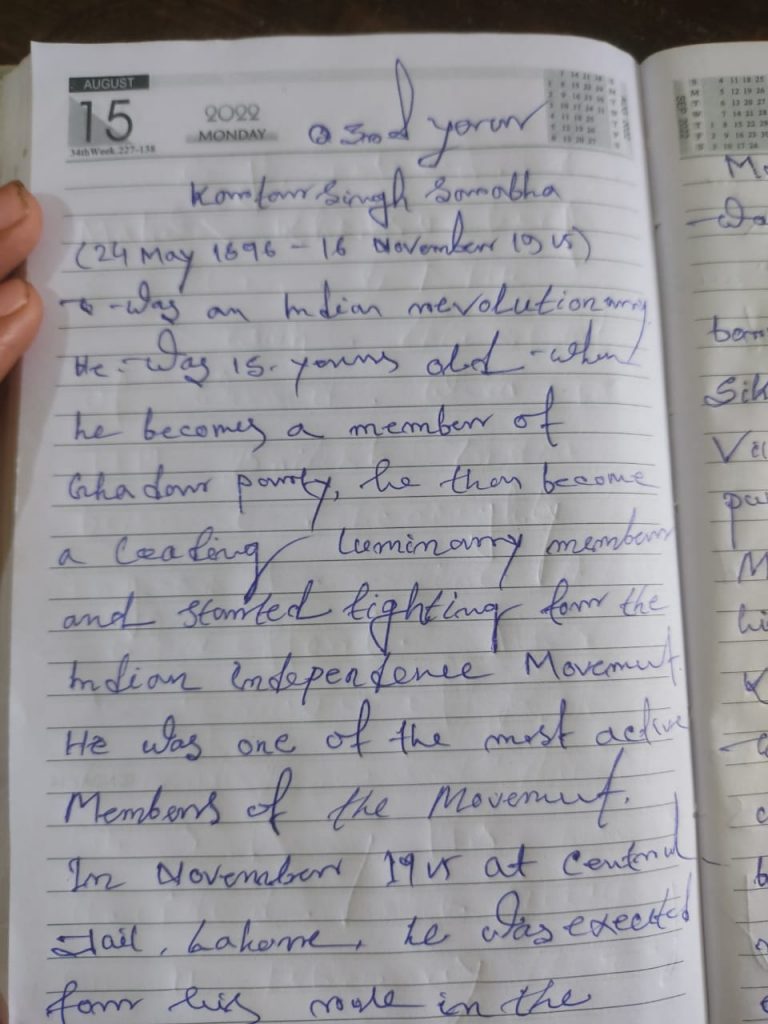 AUGUST
15
34th Week 227-138
2022
MONDAY
3rd year
Kartar Singh Sarabha
(24 May 1896 - 16 November 1915)
- was an Indian revolutionary
He was 15. years old when
he becomes a member of
Ghadar party, he than become
a leading luminary member
and started fighting for the
Indian Independence Movement.
He was one of the most active
Members of the Movement.
In November 1915 at Central
Jail, Lahore, he was exected
for his role in the
SEP 2022
Sik